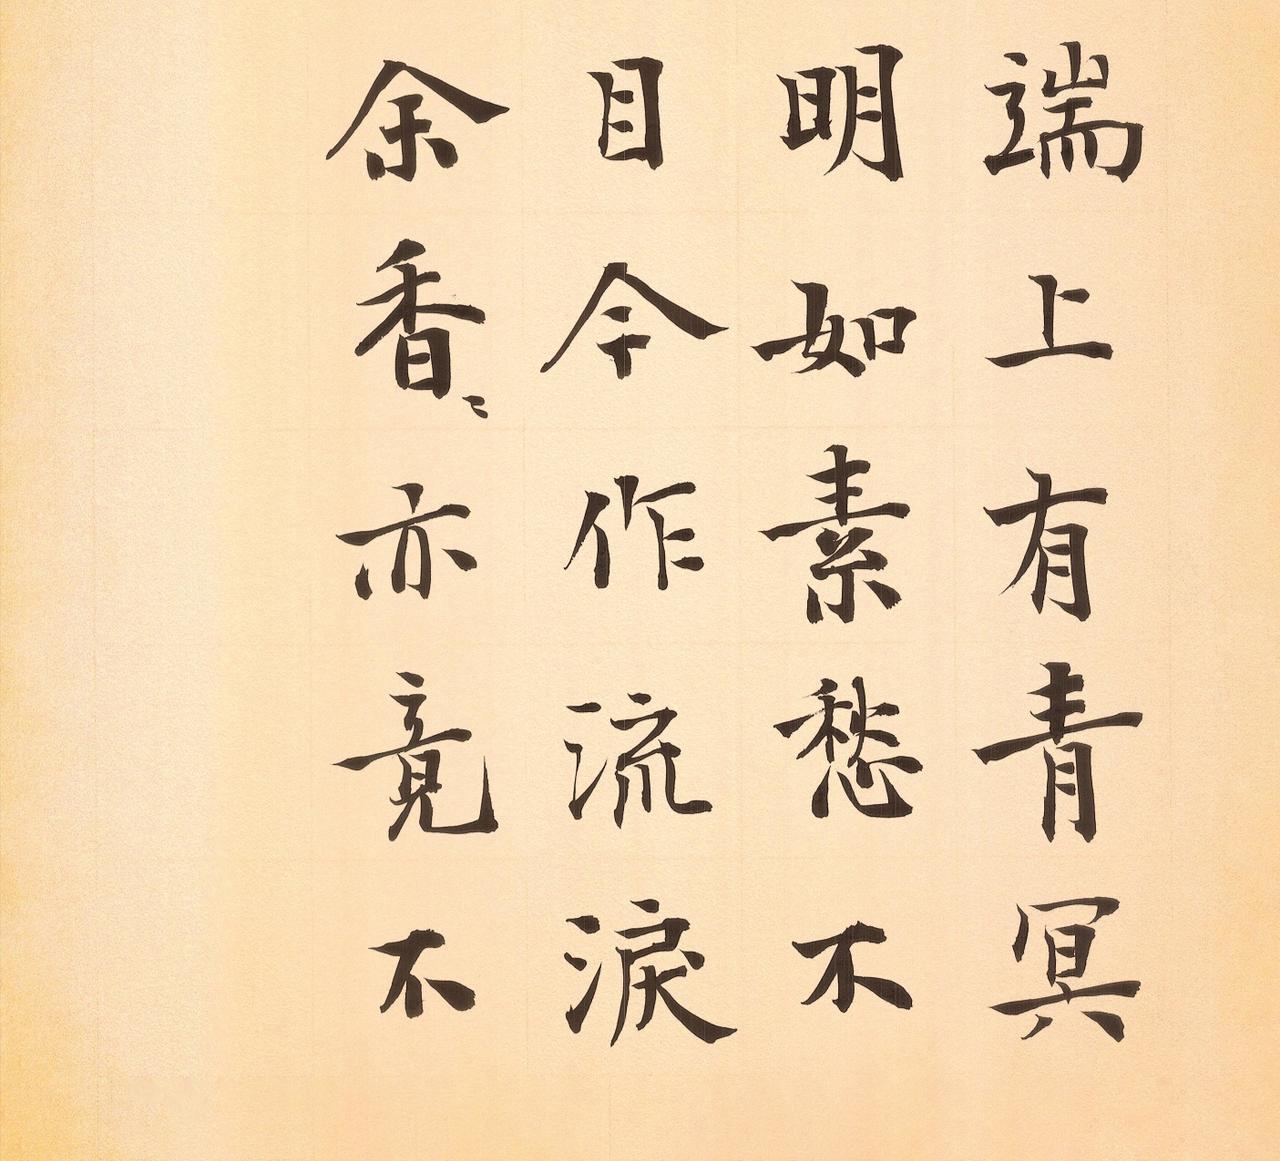 端上有青冥
明如素愁不
目今作流淚
余香〻亦竟不